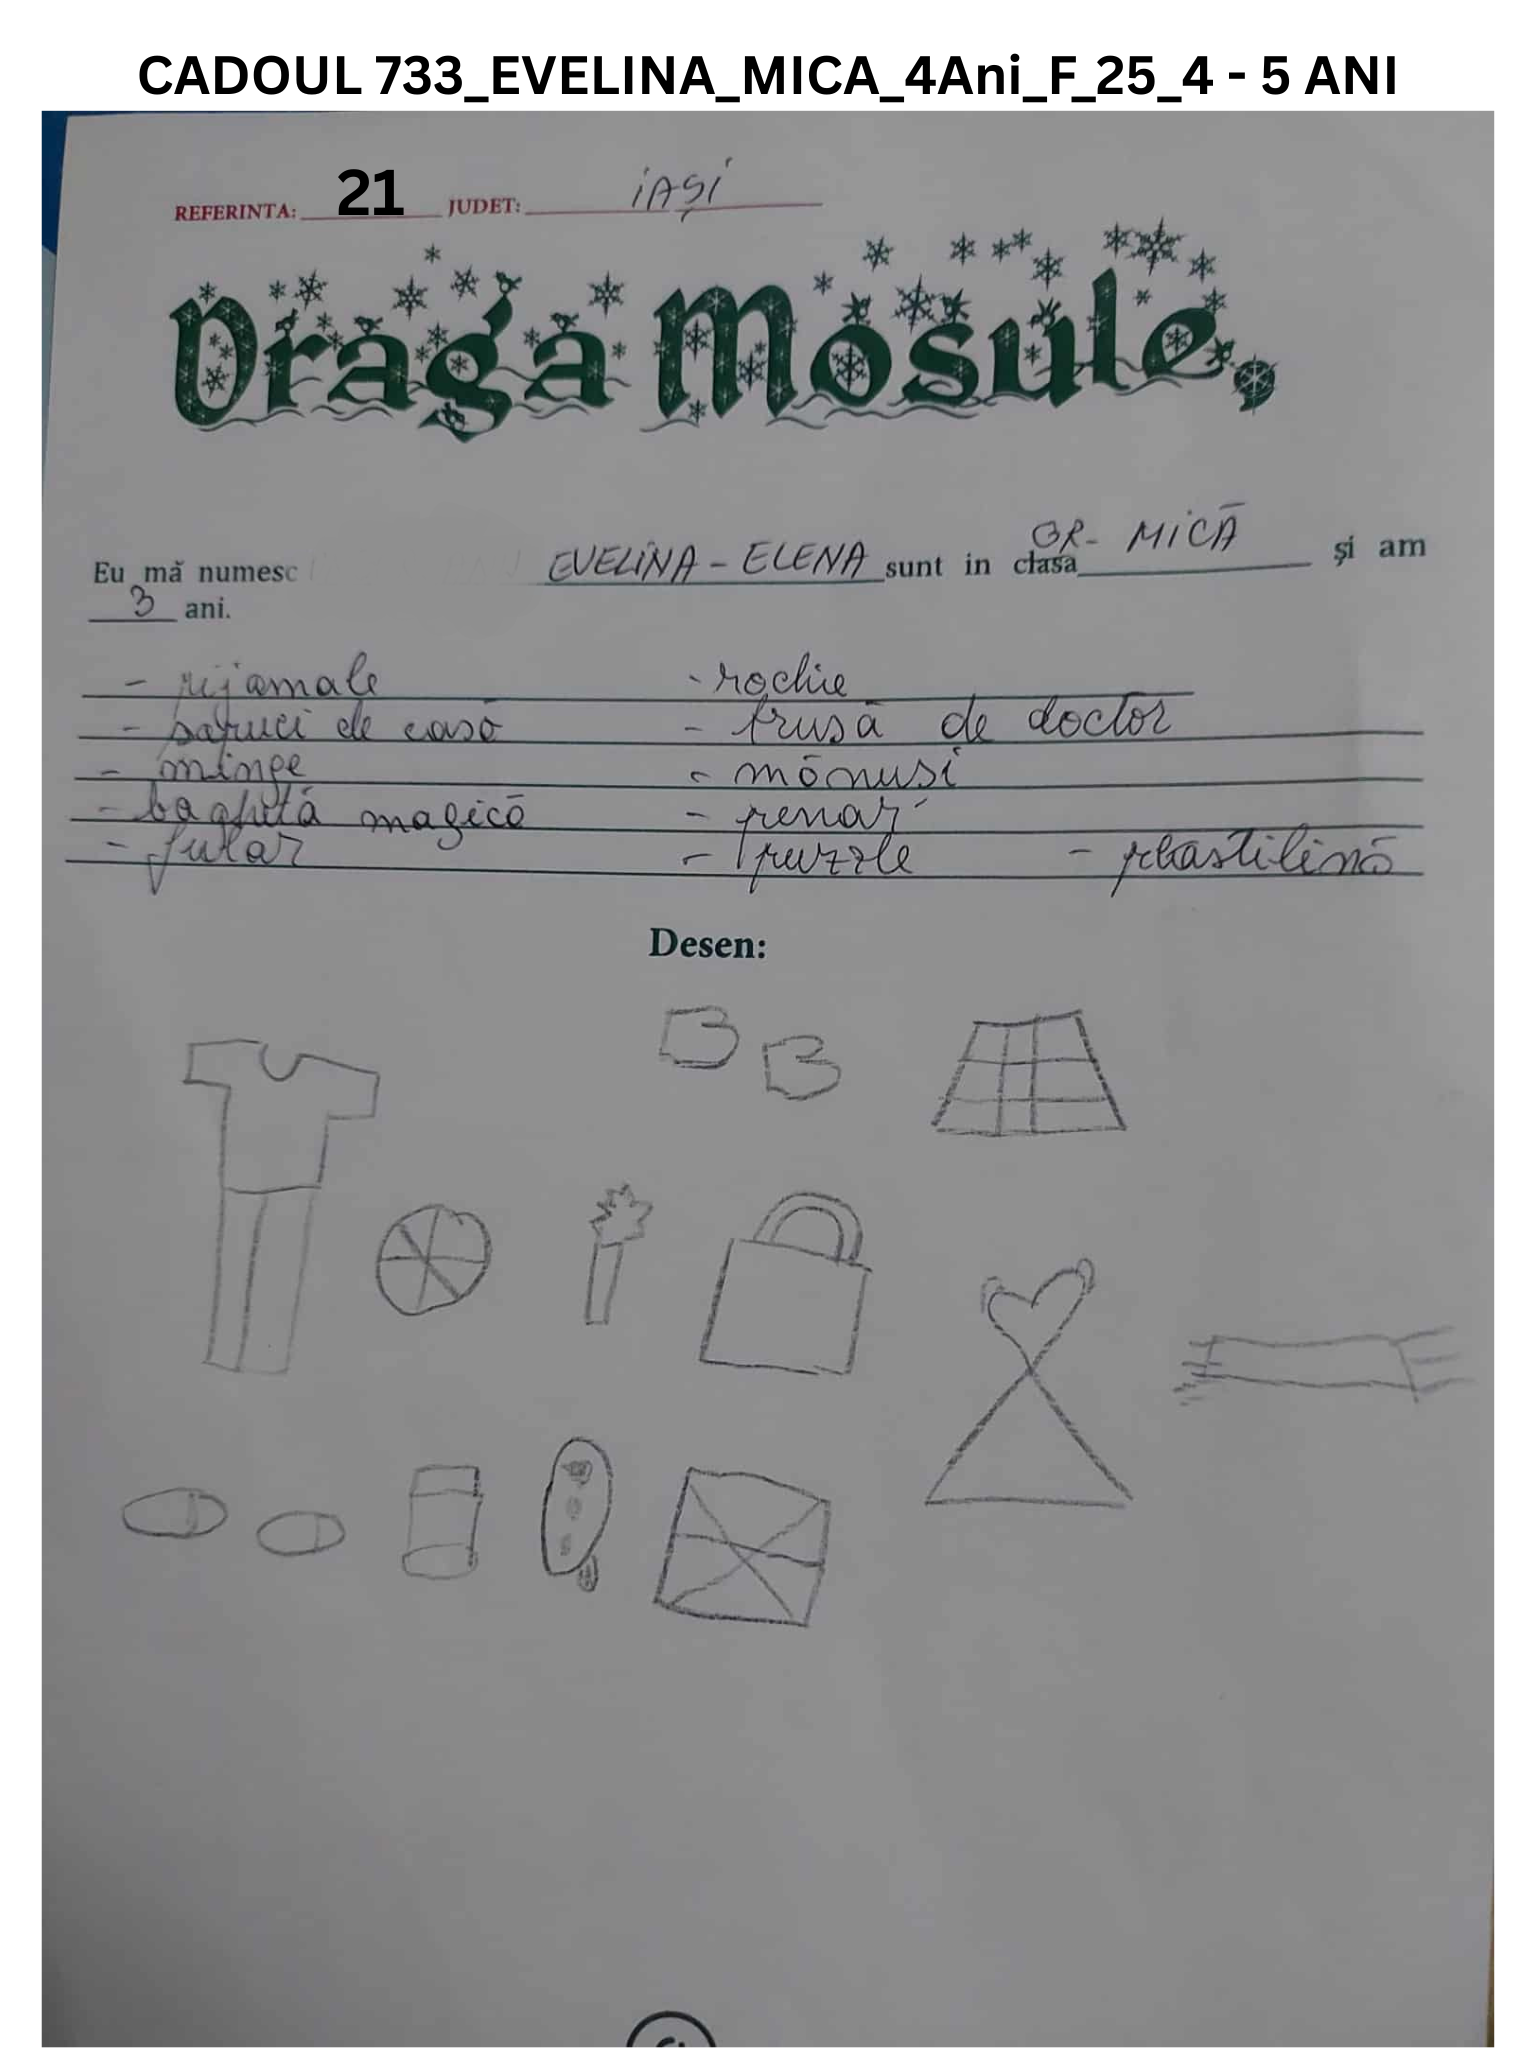 CADOUL 733_EVELINA_MICA_4Ani_F_25_4 - 5 ANI
REFERINTA: 21 JUDET: IAȘI
Draga Mosule,
Eu mă numesc EVELINA - ELENA sunt in clasa GR- MICĂ și am
3 ani.
- pijamale - rochie
- papuci de casă - trusă de doctor
- minge - mănuși
- baghetă magică - penar
- fular - puzzle - plastilină
Desen: